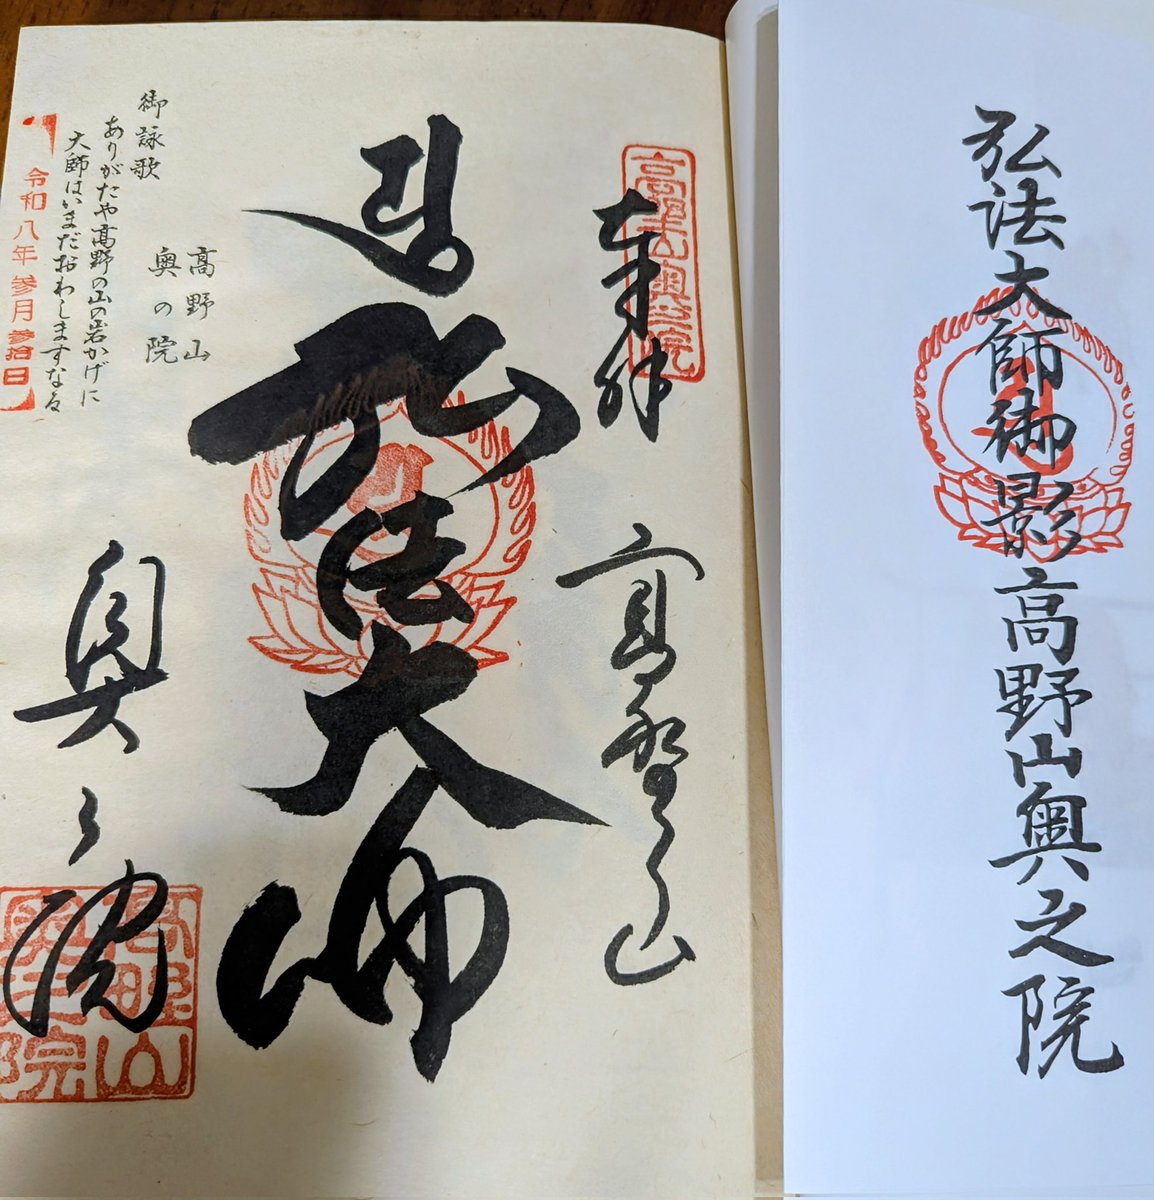 弘法大師御影高野山奥之院
高野山奥之院
奉拝
高野山
弘法大師
高野山
奥の院
御詠歌
ありがたや高野の山の岩かげに
大師はいまだおわしますなる
令和八年参月参拾日
奥之院
高野山
奥之院